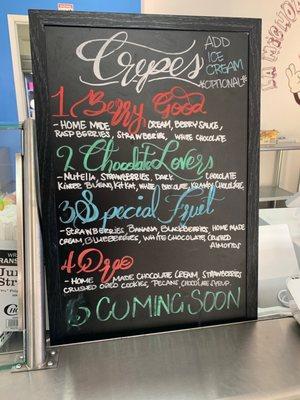 HOME MADE
Crepes
ADD
ICE
CREAM
*OPTIONAL*
1 Berry Good
- HOME MADE CREAM, BERRY SAUCE,
RASPBERRIES, STRAWBERRIES, WHITE CHOCOLATE
2 Chocolate Lovers
- NUTELLA, STRAWBERRIES, DARK CHOCOLATE
KINDER BUENO, KIT KAT, WHITE CHOCOLATE, CHOCOLATE,
3 Special Fruit
- STRAWBERRIES BANANA, BLACKBERRIES, HOME MADE
CREAM, BLUEBERRIES, WHITE CHOCOLATE, CRUSHED
ALMONDS
4 Oreo
- HOME MADE CHOCOLATE CREAM, STRAWBERRIES
CRUSHED OREO COOKIES, PECANS, CHOCOLATE SYRUP.
5 COMING SOON